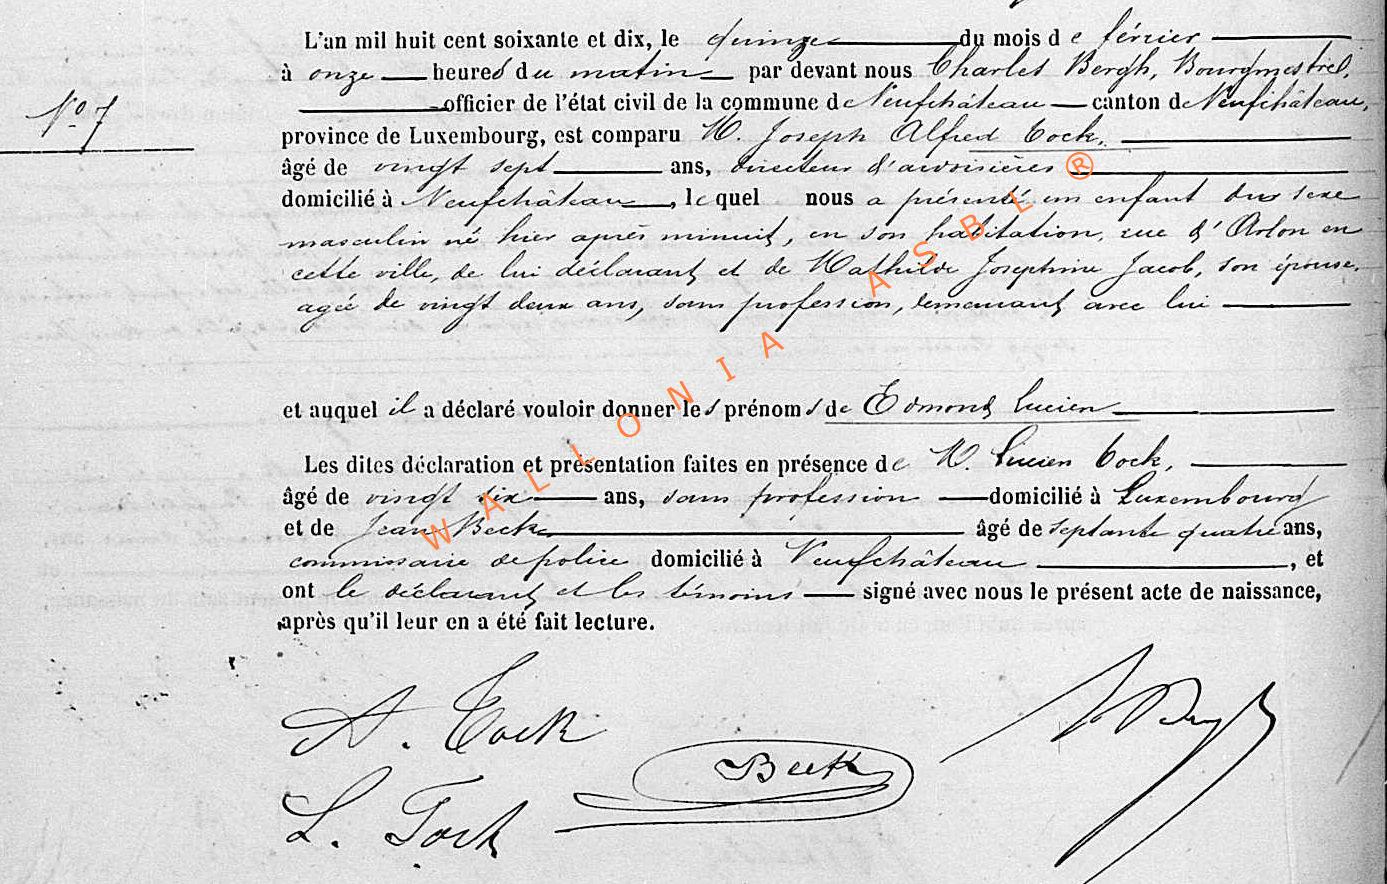 L'an mil huit cent soixante et dix, le quinze du mois de février
à onze heures du matin par devant nous Charles Bergh, Bourgmestre,
officier de l'état civil de la commune de Neufchâteau canton de Neufchâteau,
N° 7
province de Luxembourg, est comparu M. Joseph Alfred Tock,
âgé de vingt sept ans, directeur d'ardoisières ®
domicilié à Neufchâteau, lequel nous a présenté un enfant du sexe
masculin né hier après minuit, en son habitation, rue d'Arlon en
cette ville, de lui déclarant et de Mathilde Josephine Jacob, son épouse,
agée de vingt deux ans, sans profession, demeurant avec lui
et auquel il a déclaré vouloir donner les prénoms de Edmond Lucien
Les dites déclaration et présentation faites en présence de M. Lucien Tock,
âgé de vingt six ans, sans profession domicilié à Luxembourg
et de Jean Beck âgé de septante quatre ans,
commissaire de police domicilié à Neufchâteau, et
ont le déclarant et les témoins signé avec nous le présent acte de naissance,
après qu'il leur en a été fait lecture.
A. Tock
Beck
L. Tock
WALLONIA ASBL